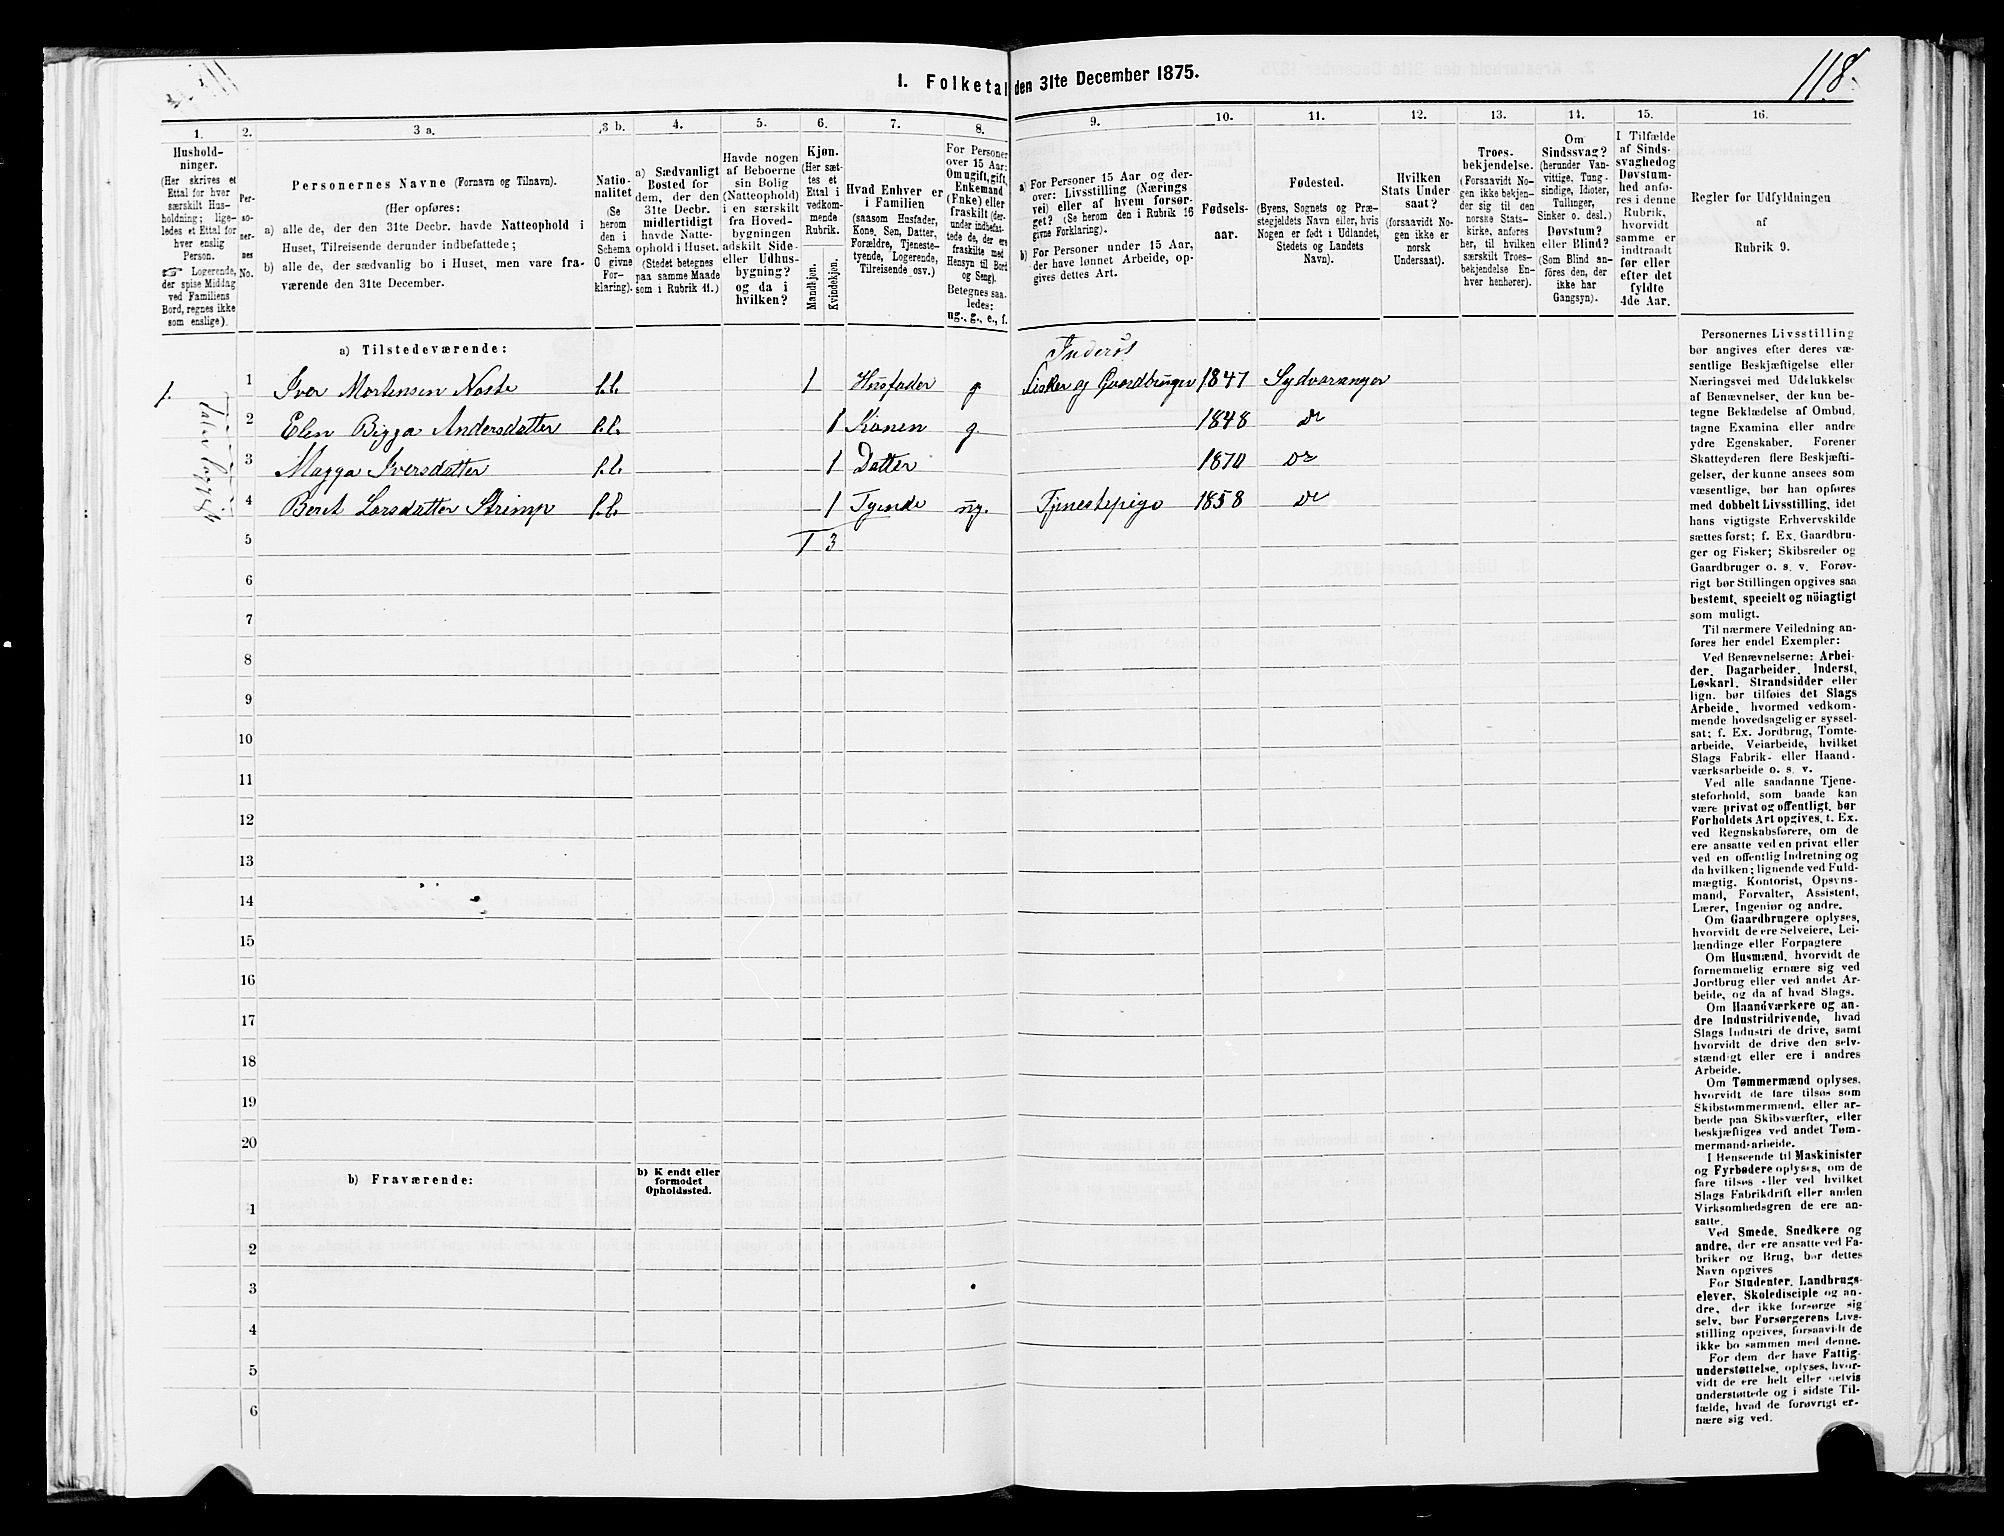 118.
1. Folketal den 31te December 1875.
1.
2.
3 a.
3 b.
4.
5.
6.
7.
8.
9.
10.
11.
12.
13.
14.
15.
16.
Hushold-
ninger.
(Her skrives et
Ettal for hver
særskilt Hus-
holdning; lige-
ledes et Ettal for
hver enslig
Person.
☞ Logerende,
der spise Middag
ved Familiens
Bord, regnes ikke
som enslige).
Per-
so-
ner-
nes
No.
Personernes Navne (Fornavn og Tilnavn).
(Her opføres:
a) alle de, der den 31te Decbr. havde Natteophold i
Huset, Tilreisende derunder indbefattede;
b) alle de, der sædvanlig bo i Huset, men vare fra-
værende den 31te December.
Natio-
nalitet
(Se
herom
den i
Schema
C givne
For-
klaring).
a) Sædvanligt
Bosted for
dem, der den
31te Decbr.
midlertidigt
havde Natte-
ophold i Huset.
(Stedet betegnes
paa samme Maade
som i Rubrik 11.)
Havde nogen
af Beboerne
sin Bolig
(Natteophold)
i en særskilt
fra Hoved-
bygningen
adskilt Side-
eller Udhus-
bygning?
og da i
hvilken?
Kjøn.
(Her sæt-
tes et
Ettal i
vedkom-
mende
Rubrik.
Mandkjøn.
Kvindekjøn.
Hvad Enhver er
i Familien
(saasom Husfader,
Kone, Søn, Datter,
Forældre, Tjeneste-
tyende, Logerende,
Tilreisende osv.)
For Personer
over 15 Aar:
Om ugift, gift,
Enkemand
(Enke) eller
fraskilt (der-
under indbefat-
tede de, der ere
fraskilte med
Hensyn til Bord
og Seng).
Betegnes saa-
ledes:
ug., g., e., f.
a) For Personer 15 Aar og der-
over: Livsstilling (Nærings
vei) eller af hvem forsør-
get? (Se herom den i Rubrik 16
givne Forklaring).
b) For Personer under 15 Aar,
der have lønnet Arbeide, op-
gives dettes Art.
Fødsels-
aar.
Fødested.
(Byens, Sognets og Præ-
stegjeldets Navn eller, hvis
Nogen er født i Udlandet,
Stedets og Landets
Navn).
Hvilken
Stats Under
saat?
(forsaavidt No-
gen ikke er
norsk
Undersaat).
Troes-
bekjendelse.
(Forsaavidt No-
gen ikke bekjen-
der sig til den
norske Stats-
kirke, anføres
her, til hvilken
særskilt Troes-
bekjendelse En-
hver henhører).
Om
Sindssvag?
(herunder Van-
vittige, Tung-
sindige, Idioter,
Tullinger,
Sinker o. desl.)
Døvstum?
eller Blind?
(Som Blind an-
føres den, der
ikke har
Gangsyn).
I Tilfælde
af Sinds-
svaghed og
Døvstum-
hed anfø-
res i denne
Rubrik,
hvorvidt
samme er
indtraadt
før eller
efter det
fyldte
4de Aar.
Regler for Udfyldningen
af
Rubrik 9.
a) Tilstedeværende:
1. 1 Iver Mortensen Noste l.l. 1 Husfader g Fisker og Gaardbruger 1847 Sydvaranger
2 Elen Bigga Andersdatter l.l. 1 Konen g. 1848 do
3 Magga Iversdatter l.l. 1 Datter 1870 do
4 Beret Larsdatter Strimp l.l. 1 Tyende ug. Tjenestepige 1858 do
5 1 3
6
7
8
9
10
11
12
13
14
15
16
17
18
19
20
b) Fraværende:
b) Kendt eller
formodet
Opholdssted.
1
2
3
4
5
6
Taler lappisk
Personernes Livsstilling
bør angives efter deres væ-
sentlige Beskjæftigelse eller
Næringsvei med Udelukkelse
af Benævnelser, der kun be-
tegne Beklædelse af Ombud,
tagne Examina eller andre
ydre Egenskaber. Forener
Skatteyderen flere Beskjæfti-
gelser, der kunne ansees som
væsentlige, bør han opføres
med dobbelt Livsstilling, idet
hans vigtigste Erhvervskilde
sættes først; f. Ex. Gaardbru-
ger og Fisker; Skibsreder og
Gaardbruger o. s. v. Forøv-
rigt bør Stillingen opgives saa
bestemt, specielt og nöiagtigt
som muligt.
Til nærmere Veiledning an-
føres her endel Exempler:
Ved Benævnelserne: Arbei-
der, Dagarbeider, Inderst,
Løskarl, Strandsidder eller
lign. bør tilføies det Slags
Arbeide, hvormed vedkom-
mende hovedsagelig er syssel-
sat; f. Ex. Jordbrug, Tomte-
arbeide, Veiarbeide, hvilket
Slags Fabrik- eller Haand-
værksarbeide o. s. v.
Ved alle saadanne Tjene-
steforhold, som baade kan
være privat og offentligt, bør
Forholdets Art opgives, t. Ex.
ved Regnskabsførere, om de
ere ansatte ved en privat eller
ved en offentlig Indretning og
da hvilken; lignende ved Fuld-
mægtig, Kontorist, Opsyns-
mand, Forvalter, Assistent,
Lærer, Ingeniør og andre.
Om Gaardbrugere oplyses,
hvorvidt de ere Selveiere, Lei-
lændinge eller Forpagtere
Om Husmænd, hvorvidt de
fornemmelig ernære sig ved
Jordbrug eller ved andet Ar-
beide, og da af hvad Slags.
Om Haandværkere og an-
dre Industridrivende, hvad
Slags Industri de drive, samt
hvorvidt de drive den selv-
stændigt eller ere i andres
Arbeide.
Om Tømmermænd oplyses,
hvorvidt de fare tilsøs som
Skibstømmermænd, eller ar-
beide paa Skibsværfter, eller
beskjæftiges ved andet Tøm-
mermand-arbeide.
I Henseende til Maskinister
og Fyrbødere oplyses, om de
fare tilsøs eller ved hvilket
Slags Fabrikdrift eller anden
Virksomhedsgren de ere an-
satte.
Ved Smede, Snedkere og
andre, der ere ansatte ved Fa-
briker og Brug, bør dettes
Navn opgives
For Studenter, Landbrugs-
elever, Skoledisciple og an-
dre, der ikke forsørge sig
selv, bør Forsørgerens Livs-
stilling opgives, forsaavidt de
ikke bo sammen med denne.
For dem der have Fattig-
understøttelse, oplyses, hvor-
vidt de ere helt eller delvis
understøttede og i sidste Til-
fælde, hvad de forøvrigt er-
nære sig ved.